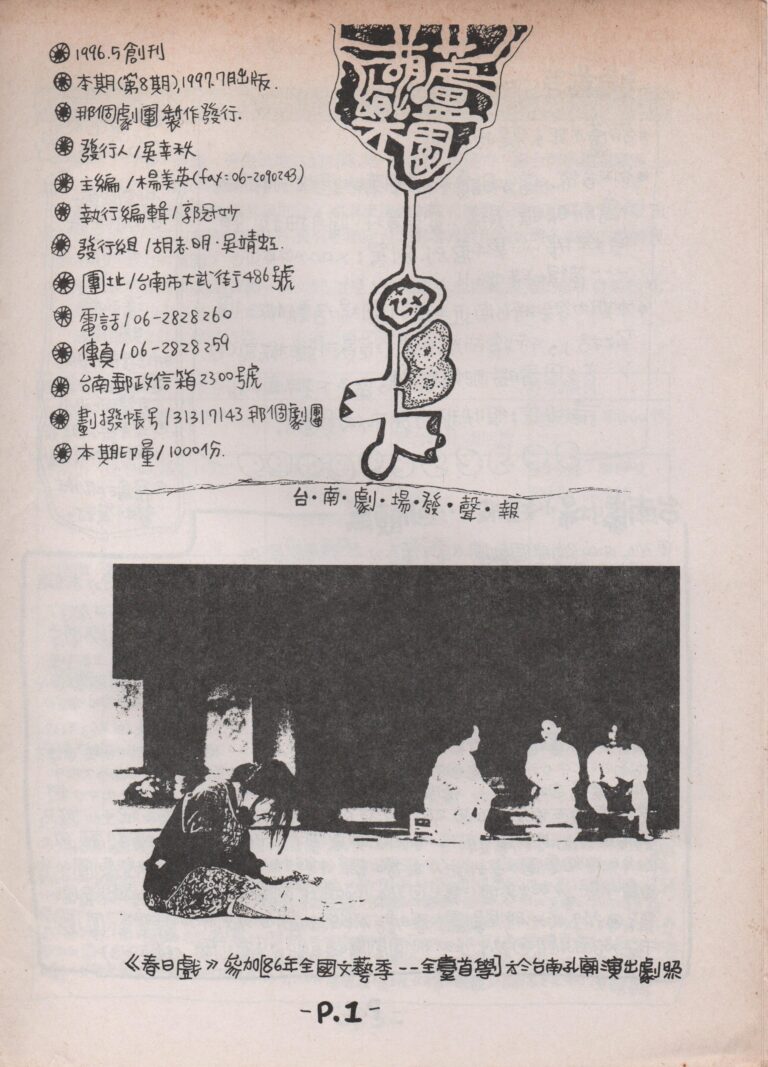 1996.5創刊
本期(第8期),1997.7月出版.
那個劇團製作發行.
發行人/吳幸秋
主編/楊美英(fax:06-2090243)
執行編輯/郭冠妙
發行組/胡志明·吳靖虹.
團址/台南市大武街486號
電話/06-2828260
傳真/06-2828259
台南郵政信箱2300號
劃撥帳号/31317143那個劇團
本期印量/1000份.
葫蘆
樂園
台·南·劇·場·發·聲·報
《春日戲》參加[86年全國文藝季--全臺首學]於台南孔廟演出劇照
-P.1-